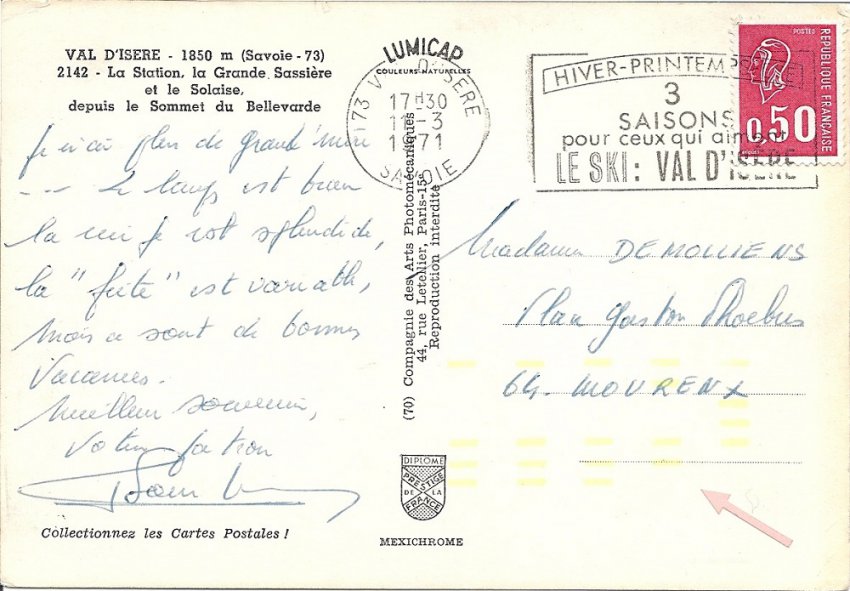 VAL D'ISERE - 1850 m (Savoie - 73)
2142 - La Station, la Grande Sassière
et le Solaise,
depuis le Sommet du Bellevarde
plein de
Le temps est bien
la neige est splendide,
la "fête" est variable,
mais ce sont de bonnes
Vacances.
Meilleur souvenir,
Votre patron
Collectionnez les Cartes Postales !
LUMICAP
COULEURS NATURELLES
(70) Compagnie des Arts Photomécaniques
44, rue Letellier, Paris-15e
Reproduction interdite
DIPLOME
PRESTIGE
DE LA
FRANCE
MEXICHROME
73 VAL D'ISERE
17H30
11-3
1971
SAVOIE
HIVER-PRINTEMPS-ÉTÉ
3
SAISONS
pour ceux qui aiment
LE SKI : VAL D'ISÈRE
POSTES
0,50
REPUBLIQUE FRANÇAISE
Madame DEMOLLIENS
Place Gaston Phoebus
64. MOURENX